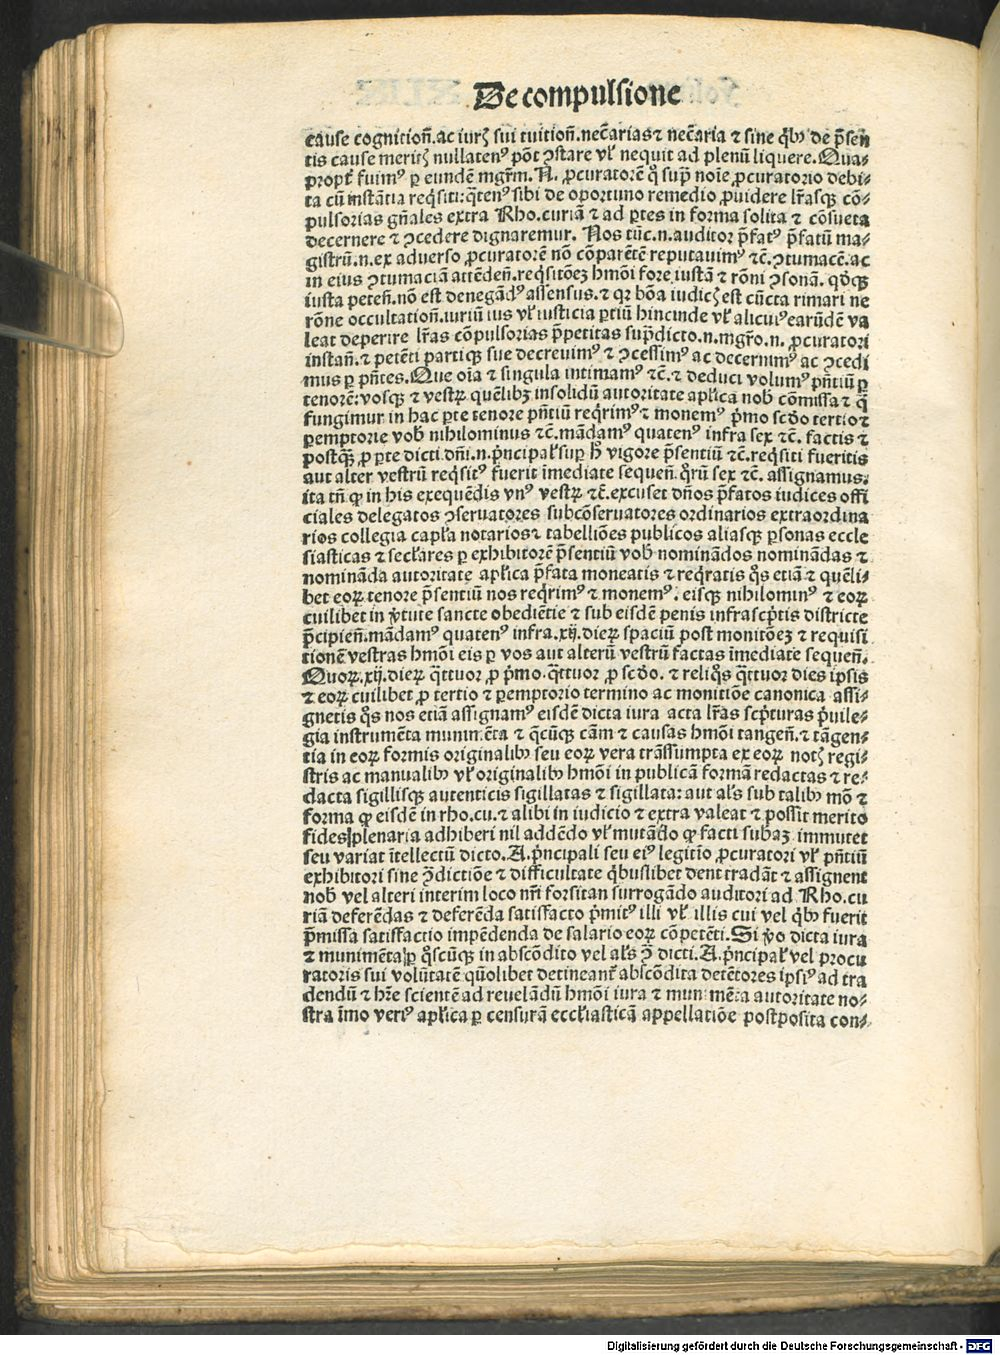 De compulsione
cause cognitioñ.ac iurꝭ sui tuitioñ.necc̄arias ⁊ necc̄aria ⁊ sine qͥbꝰ de p̄sen
tis cause meritꝭ nullatenꝰ pōt ꝯstare vl̛ nequit ad plenū liquere. Qua⸗
propt̛ fuimꝰ ꝑ eundē mgr̄m. N. ꝓcuratorē qͦ sup̄ noīe ꝓcuratorio debi⸗
ta cū instātia reqͥsiti: qͣtenꝰ sibi de oportuno remedio ꝓuidere lr̄asqꝫ cō⸗
pulsorias gn̄ales extra Rho.curiā ⁊ ad ꝑtes in forma solita ⁊ cōsueta
decernere ⁊ ꝯcedere dignaremur. Nos tūc.n.auditor p̄fatꝰ p̄fatū ma⸗
gistrū.n.ex aduerso ꝓcuratorē nō cōparētē reputauimꝰ ⁊c̄.ꝯtumacē.ac
in eius ꝯtumaciā attēdeñ.reqͥsitōeꝫ hmōi fore iustā ⁊ rōni ꝯsonā. qͦdqꝫ
iusta peteñ.nō est denegādꝰ assensus.⁊ qꝛ bōa iudicꝭ est cūcta rimari ne
rōne occultatioñ.iuriū ius vl̛ iusticia ꝑtiū hincinde vl̛ alicuiꝰ earūdē va
leat deperire lr̄as cōpulsorias p̄petitas sup̄dicto.n.mgr̄o.n. ꝓcuratori
instañ.⁊ petēti partiqꝫ sue decreuimꝰ ⁊ ꝯcessimꝰ ac decernimꝰ ac ꝯcedi
mus ꝑ pn̄tes. Que oīa ⁊ singula intimamꝰ ⁊c̄.⁊ deduci volumꝰ pn̄tiū ꝑ
tenorē: vosqꝫ ⁊ vestrꝝ quēlibꝫ insolidū autoritate apl̛ica nob̛ cōmissa ⁊ qͣ
fungimur in hac ꝑte tenore pn̄tiū reqͥrimꝰ ⁊ monemꝰ pͥmo scd̄o tertio ⁊
ꝑemptorie vob̛ nihilominus ⁊c̄.mādamꝰ quatenꝰ infra sex ⁊c̄. factis ⁊
postqͣꝫ ꝓ ꝑte dicti.dn̄i.n.pͥncipal̛ suꝑ hͦ vigore p̄sentiū ⁊c̄.reqͥsiti fueritis
aut alter vestrū reqͥsitꝰ fuerit īmediate sequeñ.qͦrū sex ⁊c̄. assignamus.
ita tn̄ ꝙ in his exequēdis vnꝰ vestrꝝ ⁊c̄.excuset dn̄os p̄fatos iudices offi
ciales delegatos ꝯseruatores subcōseruatores ordinarios extraordina
rios collegia capl̛a notarios ⁊ tabelliōes publicos aliasqꝫ ꝑsonas eccle
siasticas ⁊ secl̛ares ꝑ exhibitorē p̄sentiū vob̛ nominādos nominādas ⁊
nomināda autoritate apl̛ica p̄fata moneatis ⁊ reqͥratis qͦs etiā ⁊ quēli⸗
bet eoꝝ tenore p̄sentiū nos reqͥrimꝰ ⁊ monemꝰ. eisqꝫ nihilominꝰ ⁊ eoꝝ
cuilibet in ꝟtute sancte obediētie ⁊ sub eisdē penis infrascͥptis districte
p̄cipieñ.mādamꝰ quatenꝰ infra.xij.dieꝝ spaciū post monitōeꝫ ⁊ requisi
tionē vestras hmōi eis ꝑ vos aut alterū vestrū factas īmediate sequeñ.
Quoꝝ.xij.dieꝝ qͣttuor ꝓ pͥmo.qͣttuor ꝓ scd̄o. ⁊ reliqͦs qͣttuor dies ipsis
⁊ eoꝝ cuilibet ꝓ tertio ⁊ ꝑemptorio termino ac monitiōe canonica assi⸗
gnetis qͦs nos etiā assignamꝰ eisdē dicta iura acta lr̄as scͥpturas pͥuile⸗
gia instrumēta munimēta ⁊ qͣcūqꝫ cām ⁊ causas hmōi tangeñ.⁊ tāgen⸗
tia in eoꝝ formis originalibꝰ seu eoꝝ vera trāssumpta ex eoꝝ notꝭ regi⸗
stris ac manualibꝰ vl̛ originalibꝰ hmōi in publicā formā redactas ⁊ re⸗
dacta sigillisqꝫ autenticis sigillatas ⁊ sigillata: aut al̛s sub talibꝰ mō ⁊
forma ꝙ eisdē in rho.cu.⁊ alibi in iudicio ⁊ extra valeat ⁊ possit merito
fides plenaria adhiberi nil addēdo vl̛ mutādo ꝙ facti subaꝫ immutet
seu variat ītellectū dicto. A. pͥncipali seu eiꝰ legitīo ꝓcuratori vl̛ pn̄tiū
exhibitori sine ꝯdictiōe ⁊ difficultate qͥbuslibet dent tradāt ⁊ assignent
nob̛ vel alteri interim loco nr̄i forsitan surrogādo auditori ad Rho.cu
riā deferēdas ⁊ deferēda satisfacto pͥmitꝰ illi vl̛ illis cui vel qͥbꝰ fuerit
p̄missa satisfactio impēdenda de salario eoꝝ cōpetēti. Si ꝟo dicta iura
⁊ munimēta ꝑ qͦscūqꝫ in abscōdito vel al̛s ꝯ̄ dicti. A. pͥncipal̛ vel procu
ratoris sui volūtatē quōlibet detineant̛ abscōdita detētores ipsiꝰ ad tra
dendū ⁊ hr̄e scientē ad reuelādū hmōi iura ⁊ munimēta autoritate no⸗
stra īmo veriꝰ apl̛ica ꝑ censurā eccl̛iasticā appellatiōe postposita con⸗
Digitalisierung gefördert durch die Deutsche Forschungsgemeinschaft - DFG